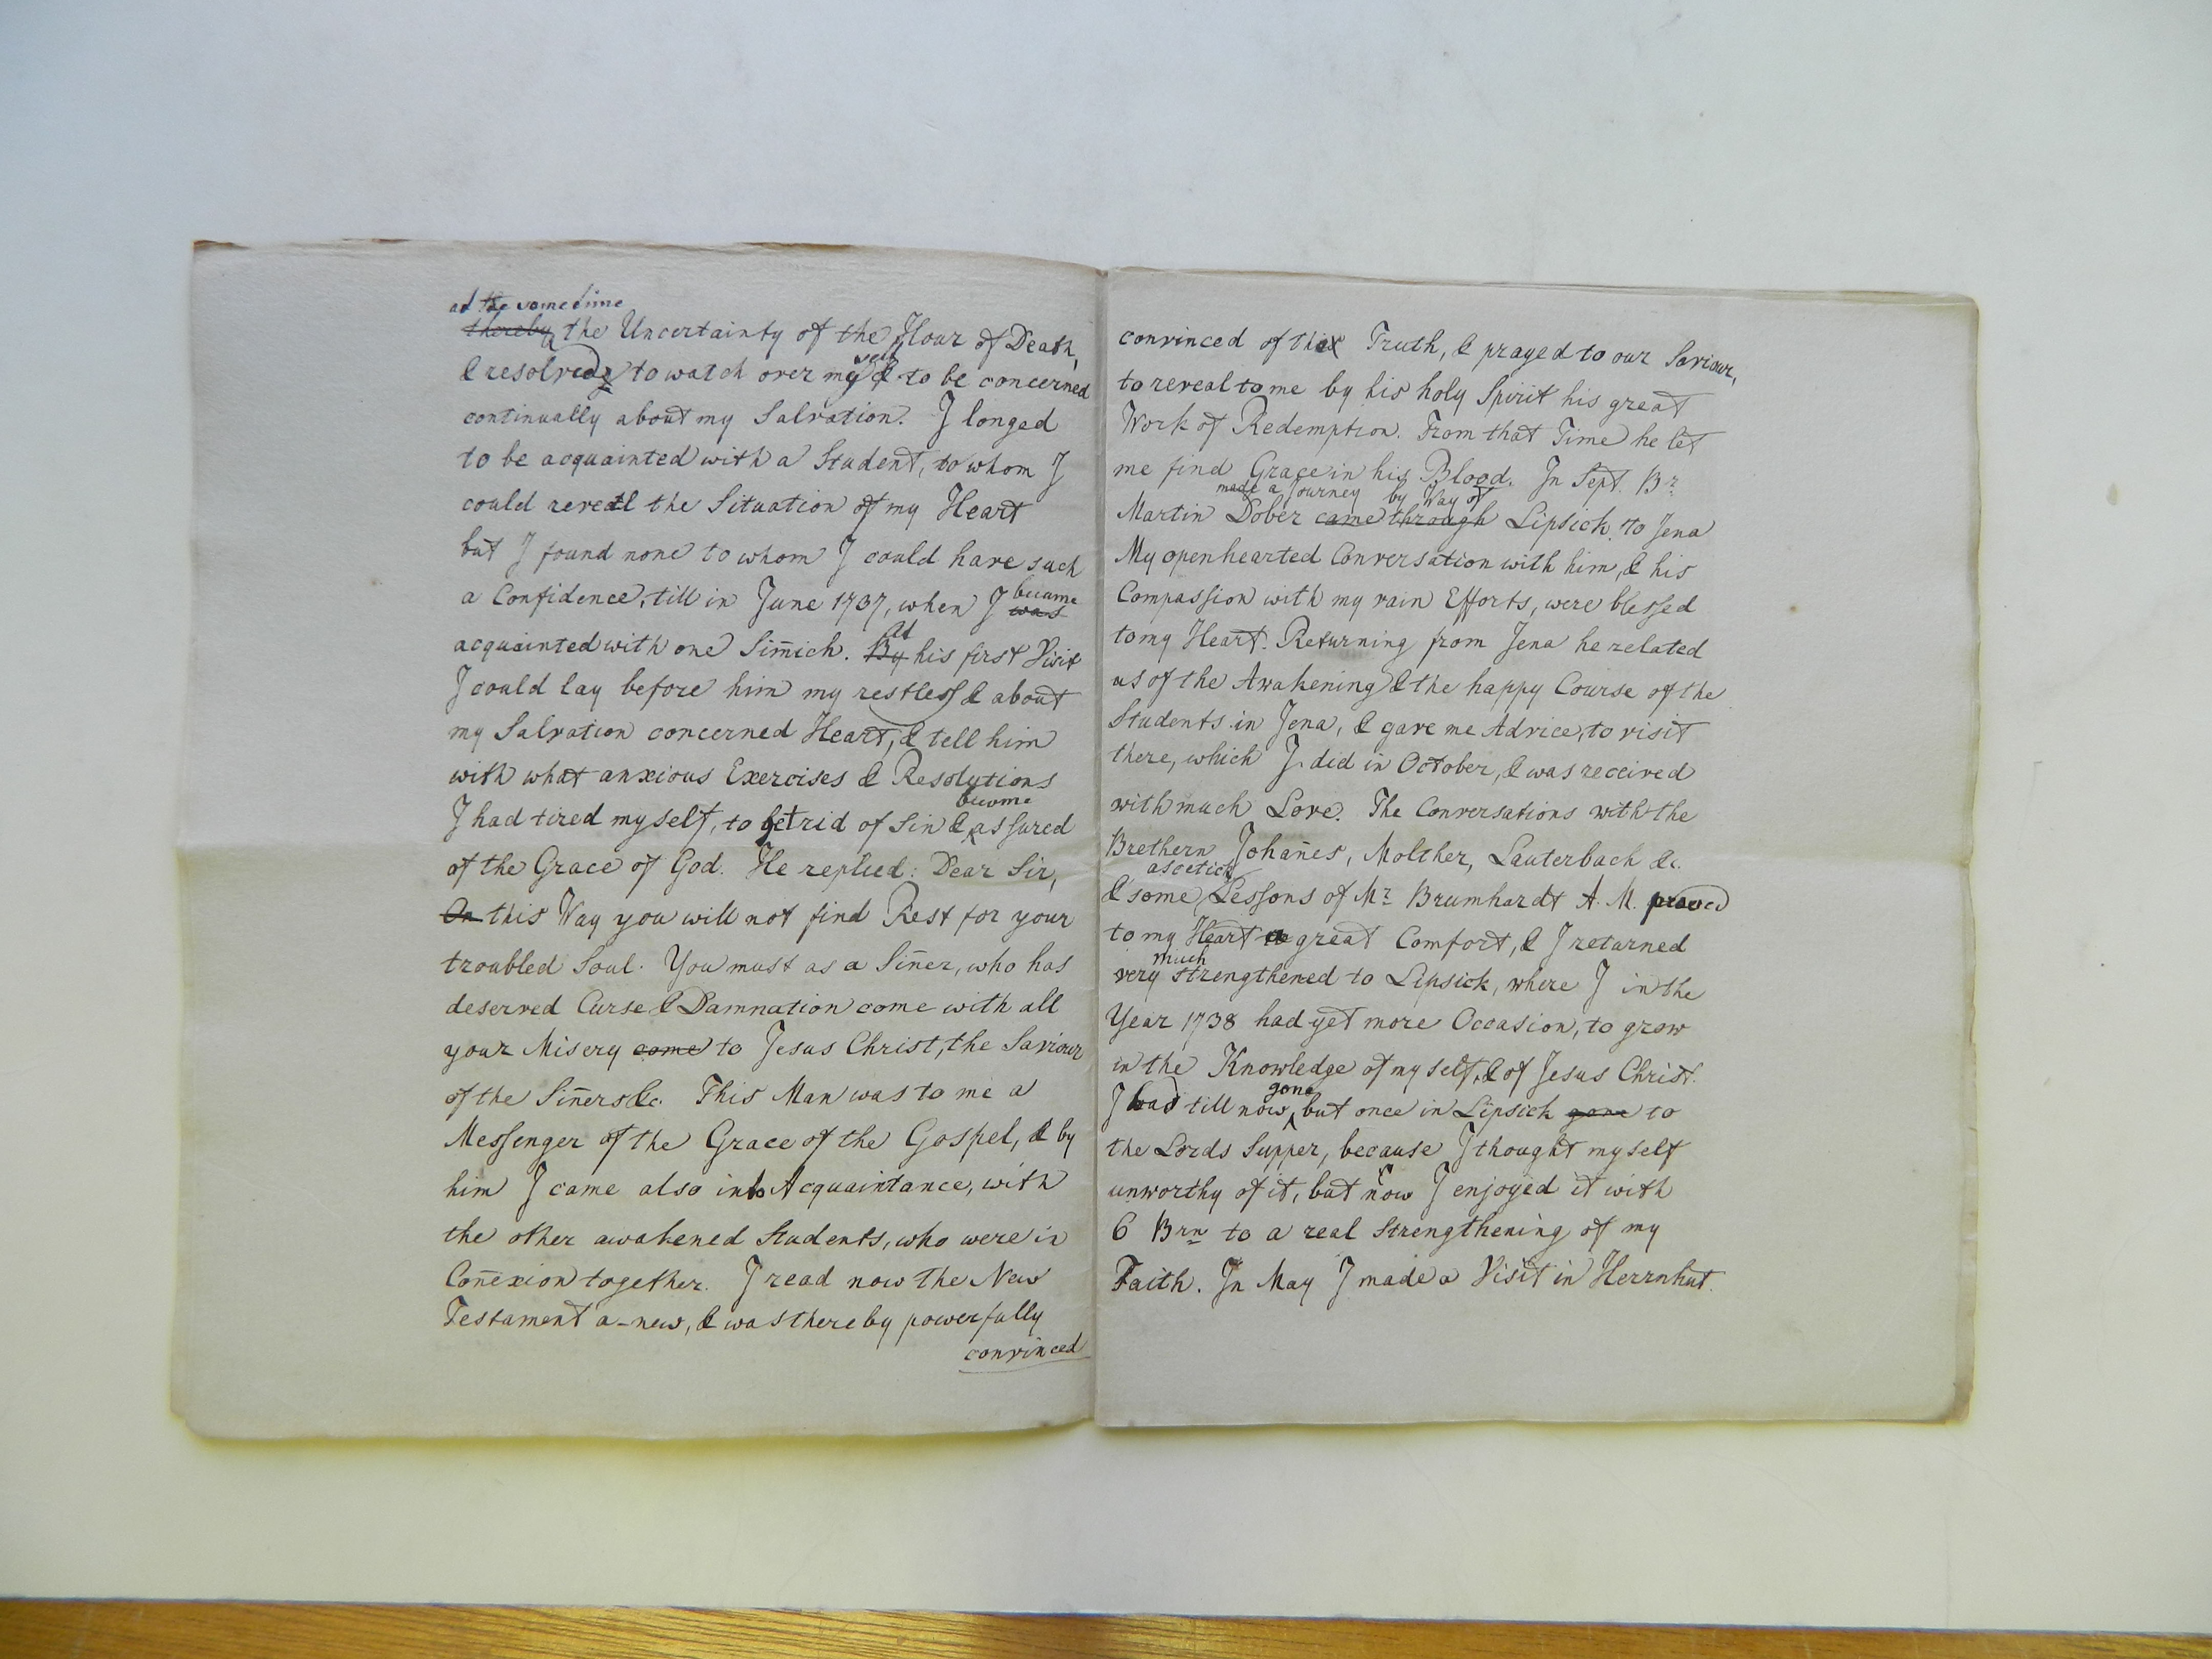 at the same time
thereby the Uncertainty of the Hour of Death,
& resolved to watch over my self & to be concerned
continually about my Salvation. I longed
to be acquainted with a Student, to whom I
could reveal the Situation of my Heart
but I found none to whom I could have such
a Confidence, till in June 1737, when I was became
acquainted with one Sim̄ich. By At his first Visit
I could lay before him my restless & about
my Salvation concerned Heart, & tell him
with what anxious Exercises & Resolutions
I had tired myself, to get rid of Sin & become assured
of the Grace of God. He replied: Dear Sir,
On this Way you will not find Rest for your
troubled Soul. You must as a Sin̄er, who has
deserved Curse & Damnation come with all
your Misery come to Jesus Christ, the Saviour
of the Sin̄ers &c. This Man was to me a
Messenger of the Grace of the Gospel, & by
him I came also into Acquaintance, with
the other awakened Students, who were in
Con̄exion together. I read now the New
Testament a-new, & was thereby powerfully
convinced
convinced of the Truth, & prayed to our Saviour,
to reveal to me by his holy Spirit his great
Work of Redemption. From that Time he let
me find Grace in his Blood. In Sept. Br
made a Journey by Way of
Martin Dober came through Lipsick to Jena
My openhearted Conversation with him, & his
Compassion with my vain Efforts, were blessed
to my Heart. Returning from Jena he related
us of the Awakening & the happy Course of the
Students in Jena, & gave me Advice, to visit
there, which I did in October, & was received
with much Love. The Conversations with the
Brethern Johan̄es, Molther, Lauterbach &c.
ascetick
& some Lessons of Mr Brumhardt A. M. proved
to my Heart a great Comfort, & I returned
much
very strengthened to Lipsick, where I in the
Year 1738 had yet more Occasion, to grow
in the Knowledge of my self, & of Jesus Christ.
gone
I had till now but once in Lipsick gone to
the Lords Supper, because I thought myself
unworthy of it, but now I enjoyed it with
6 Brn to a real Strengthening of my
Faith. In May I made a Visit in Herrnhut.